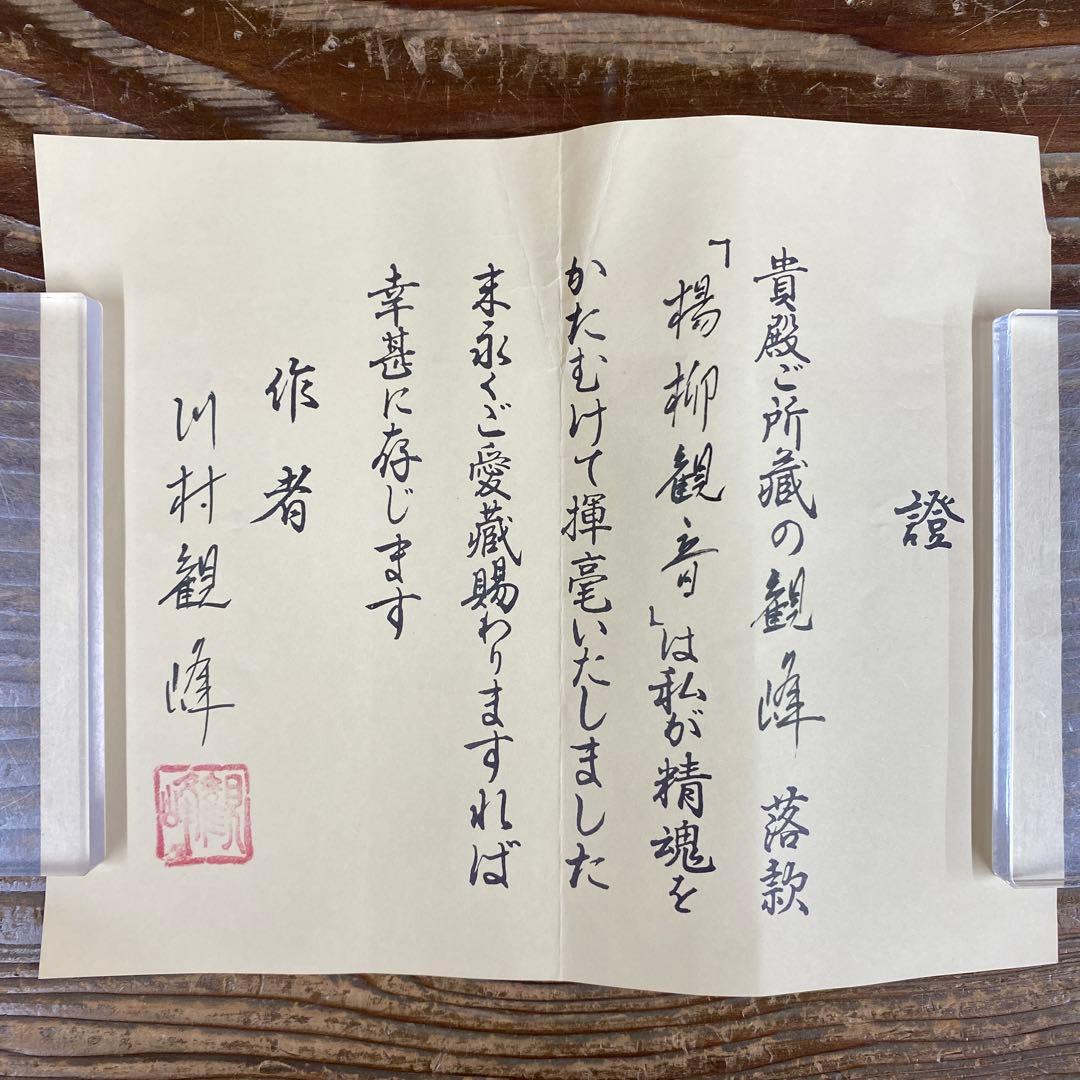 證
貴殿ご所蔵の観峰 落款
「楊柳観音」は私が精魂を
かたむけて揮毫いたしました
末永くご愛蔵賜わりますれば
幸甚に存じます
作者
川村観峰
觀峰